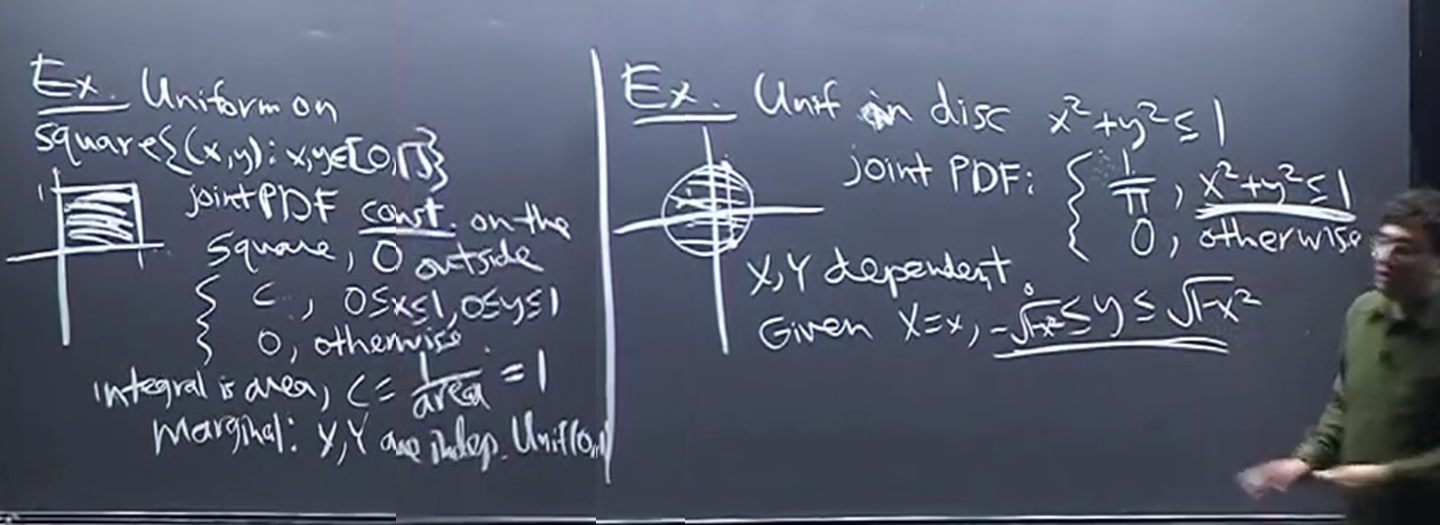 Ex. Uniform on
square {(x,y): x,y∈[0,1]}
1
joint PDF const. on the
square, 0 outside
{ c, 0≤x≤1, 0≤y≤1
0, otherwise
integral is area, c = 1/area = 1
marginal: X,Y are indep. Unif(0,1)
Ex. Unif in disc x²+y²≤1
joint PDF: { 1/π, x²+y²≤1
0, otherwise
X,Y dependent
Given X=x, -√1-x² ≤ y ≤ √1-x²